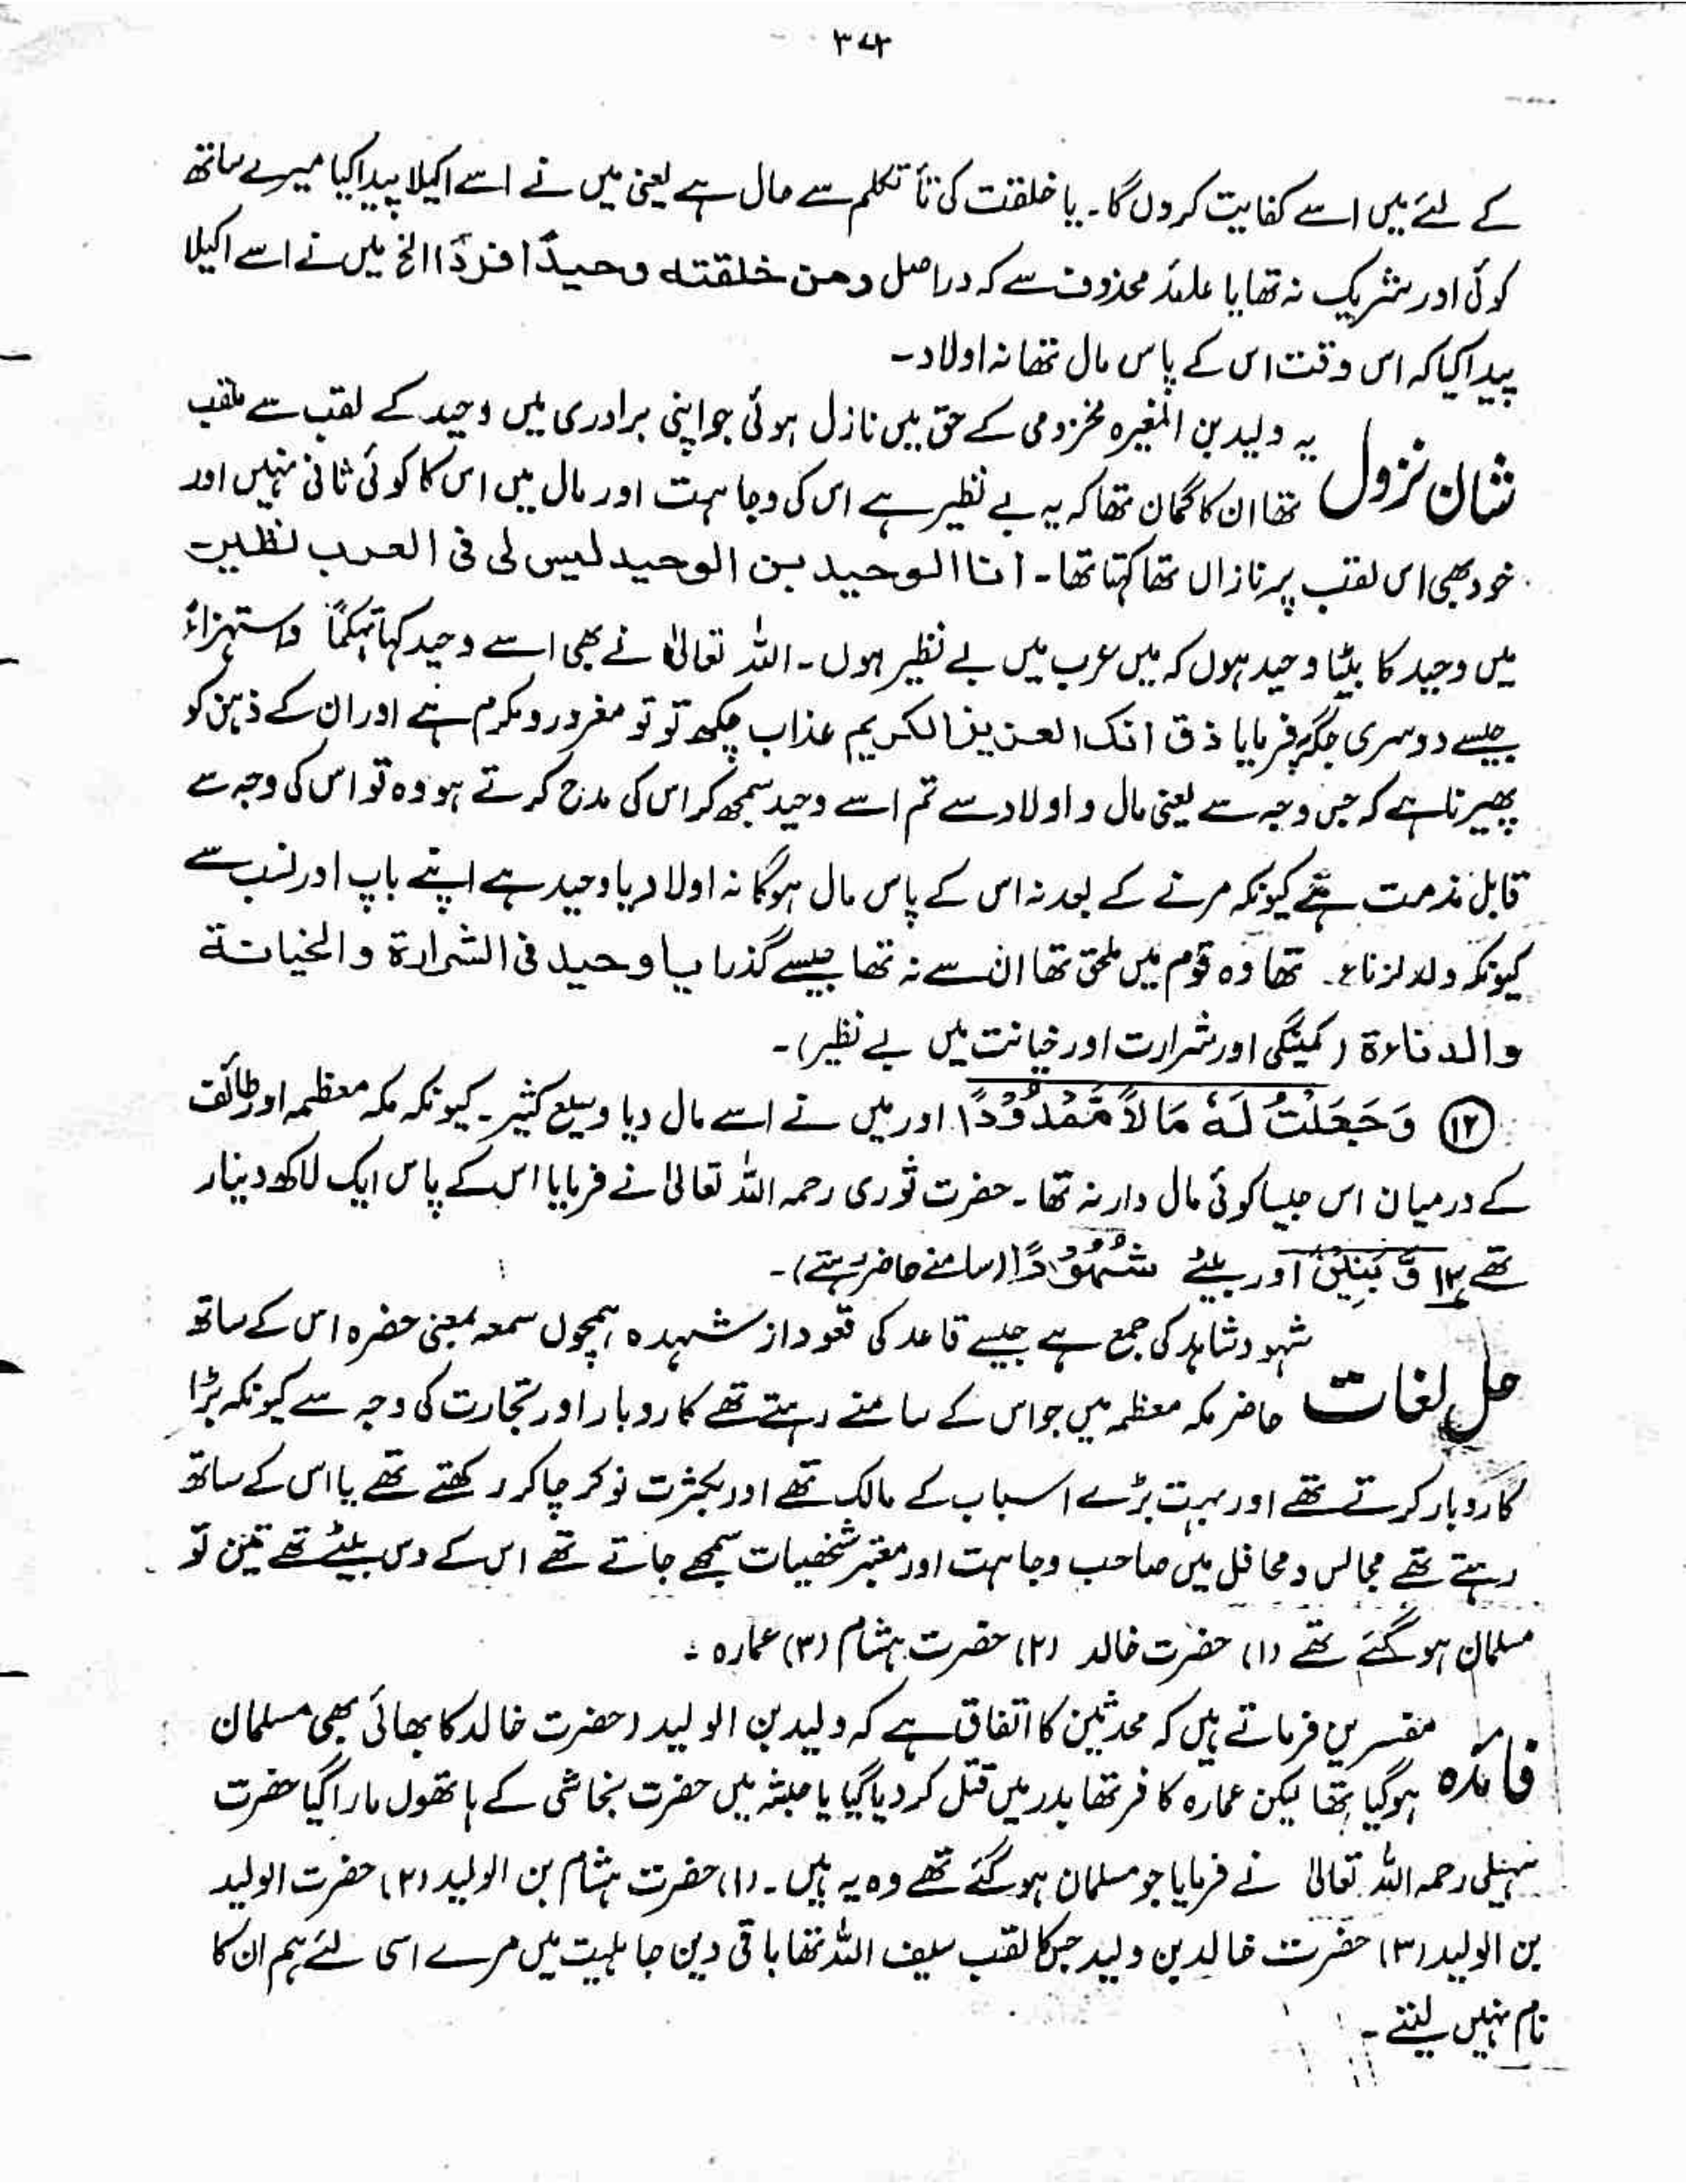 ۳۷۳
کے لئے میں اسے کفایت کروں گا۔ یا خلقت کی تأ تکلم سے حال ہے یعنی میں نے اسے اکیلا پیدا کیا میرے ساتھ
کوئی اور شریک نہ تھا یا عائد محذوف سے کہ دراصل ومن خلقته وحیدًا فردًا الخ میں نے اسے اکیلا
پیدا کیا کہ اس وقت اس کے پاس مال تھا نہ اولاد۔
شان نزول یہ ولید بن المغیرہ مخزومی کے حق میں نازل ہوئی جو اپنی برادری میں وحید کے لقب سے ملقب
تھا ان کا گمان تھا کہ یہ بے نظیر ہے اس کی وجاہت اور مال میں اس کا کوئی ثانی نہیں اور
خود بھی اس لقب پر نازاں تھا کہتا تھا۔ انا الوحید بن الوحید لیس لی فی العرب نظیر
میں وحید کا بیٹا وحید ہوں کہ میں عرب میں بے نظیر ہوں۔ اللہ تعالیٰ نے بھی اسے وحید کہا تہکمًا واستہزاءً
جیسے دوسری جگہ فرمایا ذق انک العزیز الکریم عذاب چکھ تو تو مغرور و مکرم ہے اور ان کے ذہن کو
پھیرنا ہے کہ جس وجہ سے یعنی مال و اولاد سے تم اسے وحید سمجھ کر اس کی مدح کرتے ہو وہ تو اس کی وجہ سے
قابل مذمت ہے کیونکہ مرنے کے بعد نہ اس کے پاس مال ہوگا نہ اولاد یا وحید ہے اپنے باپ اور نسب سے
کیونکہ ولد لزناء تھا وہ قوم میں ملحق تھا ان سے نہ تھا جیسے گذرا یا وحید فی الشرارة والخیانة
والدناءة (کمینگی اور شرارت اور خیانت میں بے نظیر)۔
⑫ وَجَعَلْتُ لَهٗ مَالًا مَّمْدُوْدًا اور میں نے اسے مال دیا وسیع کثیر۔ کیونکہ مکہ معظمہ اور طائف
کے درمیان اس جیسا کوئی مال دار نہ تھا۔ حضرت ثوری رحمہ اللہ تعالیٰ نے فرمایا اس کے پاس ایک لاکھ دینار
تھے ۱۳ وَّ بَنِیْنَ اور بیٹے شُهُوْدًا (سامنے حاضر رہتے)۔
حل لغات شہود شاہد کی جمع ہے جیسے قاعد کی قعود از شہدہ ہمچوں سمعہ بمعنی حضرہ اس کے ساتھ
حاضر مکہ معظمہ میں جو اس کے سامنے رہتے تھے کاروبار اور تجارت کی وجہ سے کیونکہ بڑا
کاروبار کرتے تھے اور بہت بڑے اسباب کے مالک تھے اور بکثرت نوکر چاکر رکھتے تھے یا اس کے ساتھ
رہتے تھے مجالس و محافل میں صاحب وجاہت اور معتبر شخصیات سمجھے جاتے تھے اس کے دس بیٹے تھے تین تو
مسلمان ہو گئے تھے (۱) حضرت خالد (۲) حضرت ہشام (۳) عمارہ :
فائدہ مفسرین فرماتے ہیں کہ محدثین کا اتفاق ہے کہ ولید بن الولید (حضرت خالد کا بھائی بھی مسلمان
ہوگیا تھا لیکن عمارہ کافر تھا بدر میں قتل کر دیا گیا یا حبشہ میں حضرت نجاشی کے ہاتھوں مارا گیا حضرت
سہیلی رحمہ اللہ تعالیٰ نے فرمایا جو مسلمان ہو گئے تھے وہ یہ ہیں۔ (۱) حضرت ہشام بن الولید (۲) حضرت الولید
بن الولید (۳) حضرت خالد بن ولید جس کا لقب سیف اللہ تھا باقی دین جاہلیت میں مرے اسی لئے ہم ان کا
نام نہیں لیتے۔